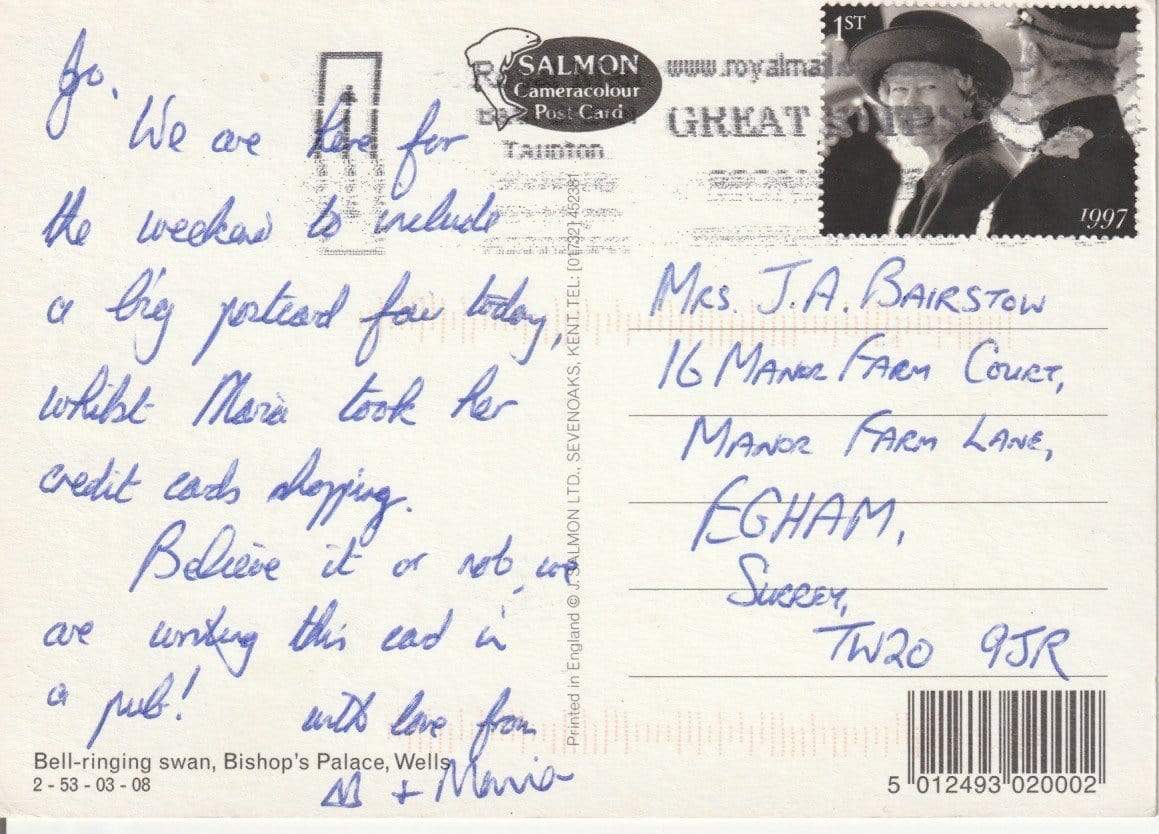 Jo.
We are here for
the weekend to include
a big postcard fair today,
whilst Maria took her
credit cards shopping.
Believe it or not, we
are writing this card in
a pub!
with love from
M + Maria
Bell-ringing swan, Bishop's Palace, Wells
2 - 53 - 03 - 08
SALMON
Cameracolour
Post Card
Taunton
www.royalmail
GREAT
Printed in England © J. SALMON LTD., SEVENOAKS, KENT. TEL: [01732] 452381
1ST
1997
MRS. J.A. BAIRSTOW
16 MANOR FARM COURT,
MANOR FARM LANE,
EGHAM,
SURREY,
TW20 9JR
5 012493 020002